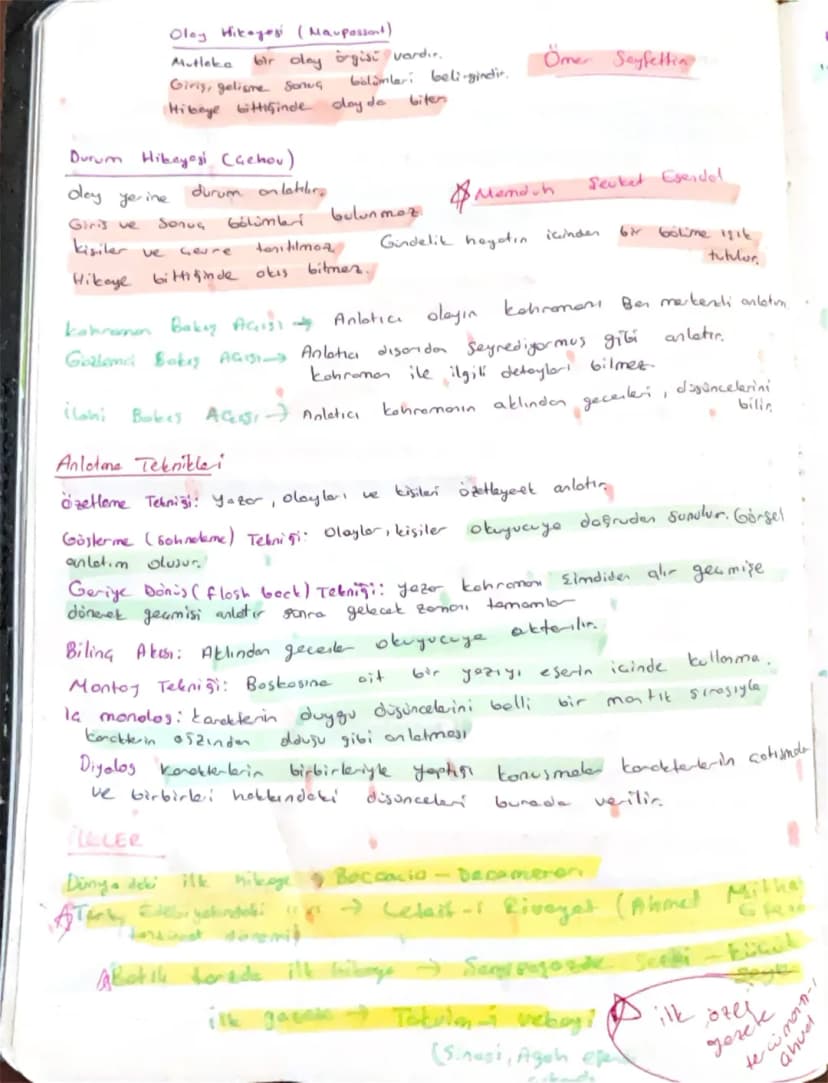 Olay Hikayesi (Maupassant)
Mutlaka bir olay örgüsü vardır.
Ömer Seyfettin
Giriş, gelişme sonuç bölümleri belirgindir.
Hikaye bittiğinde olay da biter
Durum Hikayesi (Çehov)
olay yerine durum anlatılır.
Memduh Şevket Esendal
Giriş ve Sonuç bölümleri bulunmaz
kişiler ve çevre tanıtılmaz
Gündelik hayatın içinden bir bölüme ışık tutulur.
Hikaye bittiğinde akış bitmez.
kahraman Bakış Açısı → Anlatıcı olayın kahramanı Ben merkezli anlatım
Gözlemci Bakış Açısı → Anlatıcı dışarıdan seyrediyormuş gibi anlatır.
kahraman ile ilgili detayları bilmez.
ilahi Bakış Açısı → Anlatıcı kahramanın aklından geçenleri, düşüncelerini
bilir
Anlatma Teknikleri
Özetleme Tekniği: Yazar, olayları ve kişileri özetleyerek anlatır.
Gösterme (sahneleme) Tekniği: Olaylar, kişiler okuyucuya doğrudan sunulur. Görsel
anlatım oluşur.
Geriye Dönüş (flash back) Tekniği: yazar kahramanı şimdiden alır geçmişe
dönerek geçmişi anlatır sonra gelecek zamanı tamamlar
Bilinç Akışı: Aklından geçenler okuyucuya aktarılır.
Montaj Tekniği: Başkasına ait bir yazıyı eserin içinde kullanma.
İç monolog: karakterin duygu düşüncelerini belli bir mantık sırasıyla
karakterin ağzından olduğu gibi anlatması
Diyalog karakterlerin birbirleriyle yaptığı konuşmalar karakterlerin çatışmada
ve birbirleri hakkındaki düşünceleri burada verilir.
İLKLER
Dünyadaki ilk hikaye → Boccacio - Decameron
Türk Edebiyatındaki " " → Letaif-i Rivayat (Ahmet Mithat
tanzimat dönemi)
Batılı tarzda ilk hikaye → Sami Küçük
ilk gazete → Takvim-i vekayi
ilk özel
gazete
tercüman-ı
ahval
(Şinasi, Agah